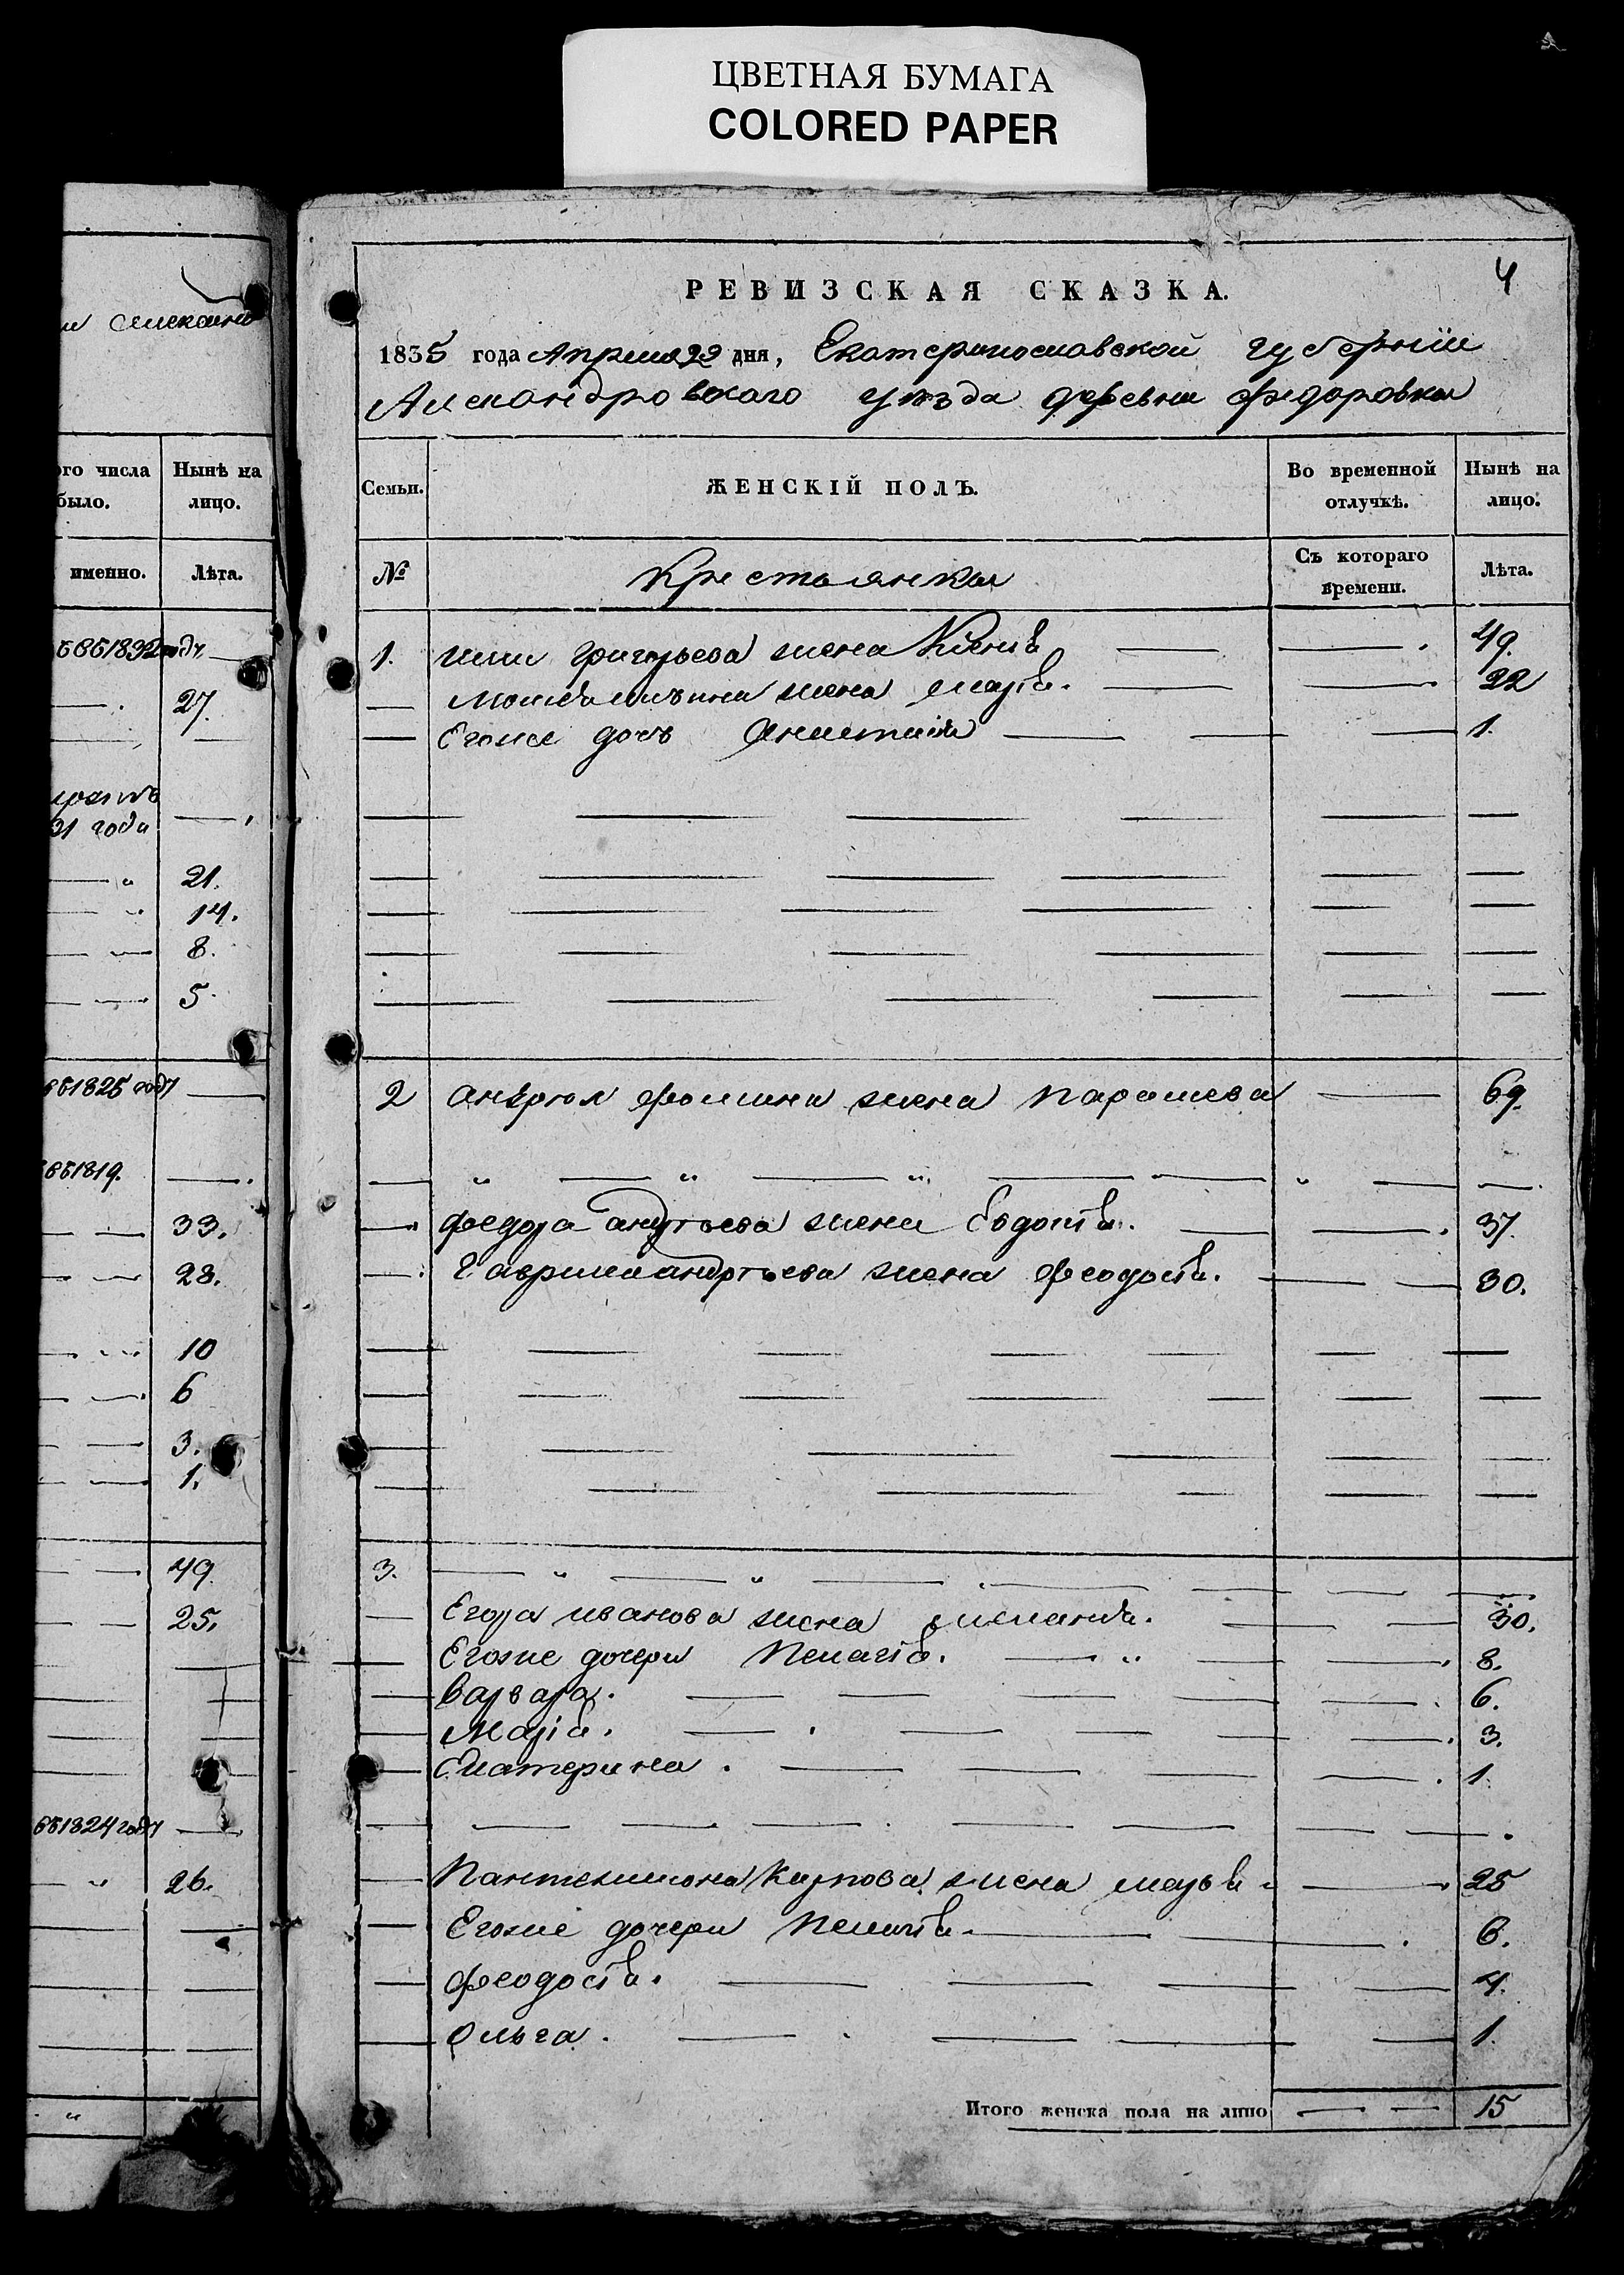 ЦВЕТНАЯ БУМАГА
COLORED PAPER
4
РЕВИЗСКАЯ СКАЗКА.
1835 года Апреля 29 дня, Екатеринославской губернии
Александровского уѣзда деревни Федоровки
ого числа было.
Нынѣ на лицо.
именно.
Лѣта.
1832 году
27.
31 года
21.
14.
8.
5.
1825 году
1819.
33.
28.
10
6
3.
1.
49.
25.
1824 году
26.
Семьи.
ЖЕНСКІЙ ПОЛЪ.
Во временной отлучкѣ.
Нынѣ на лицо.
№
Крестьянки
Съ котораго времени.
Лѣта.
1. Григорьева жена 49.
жена Марія. 22
Егоже дочь 1.
2 Андрея Фомина жена Парасцева 69.
Федора Андреева жена Евдокія. 37.
Гаврила Андреева жена Феодосія. 30.
3.
Егора Иванова жена 30.
Егоже дочери Пелагія. 8.
Варвара. 6.
Марія. 3.
Екатерина. 1.
Пантелимона Карпова жена Марья 25
Егоже дочери Пелагія 6.
Феодосія. 4.
Ольга. 1.
Итого женска пола на лицо 15